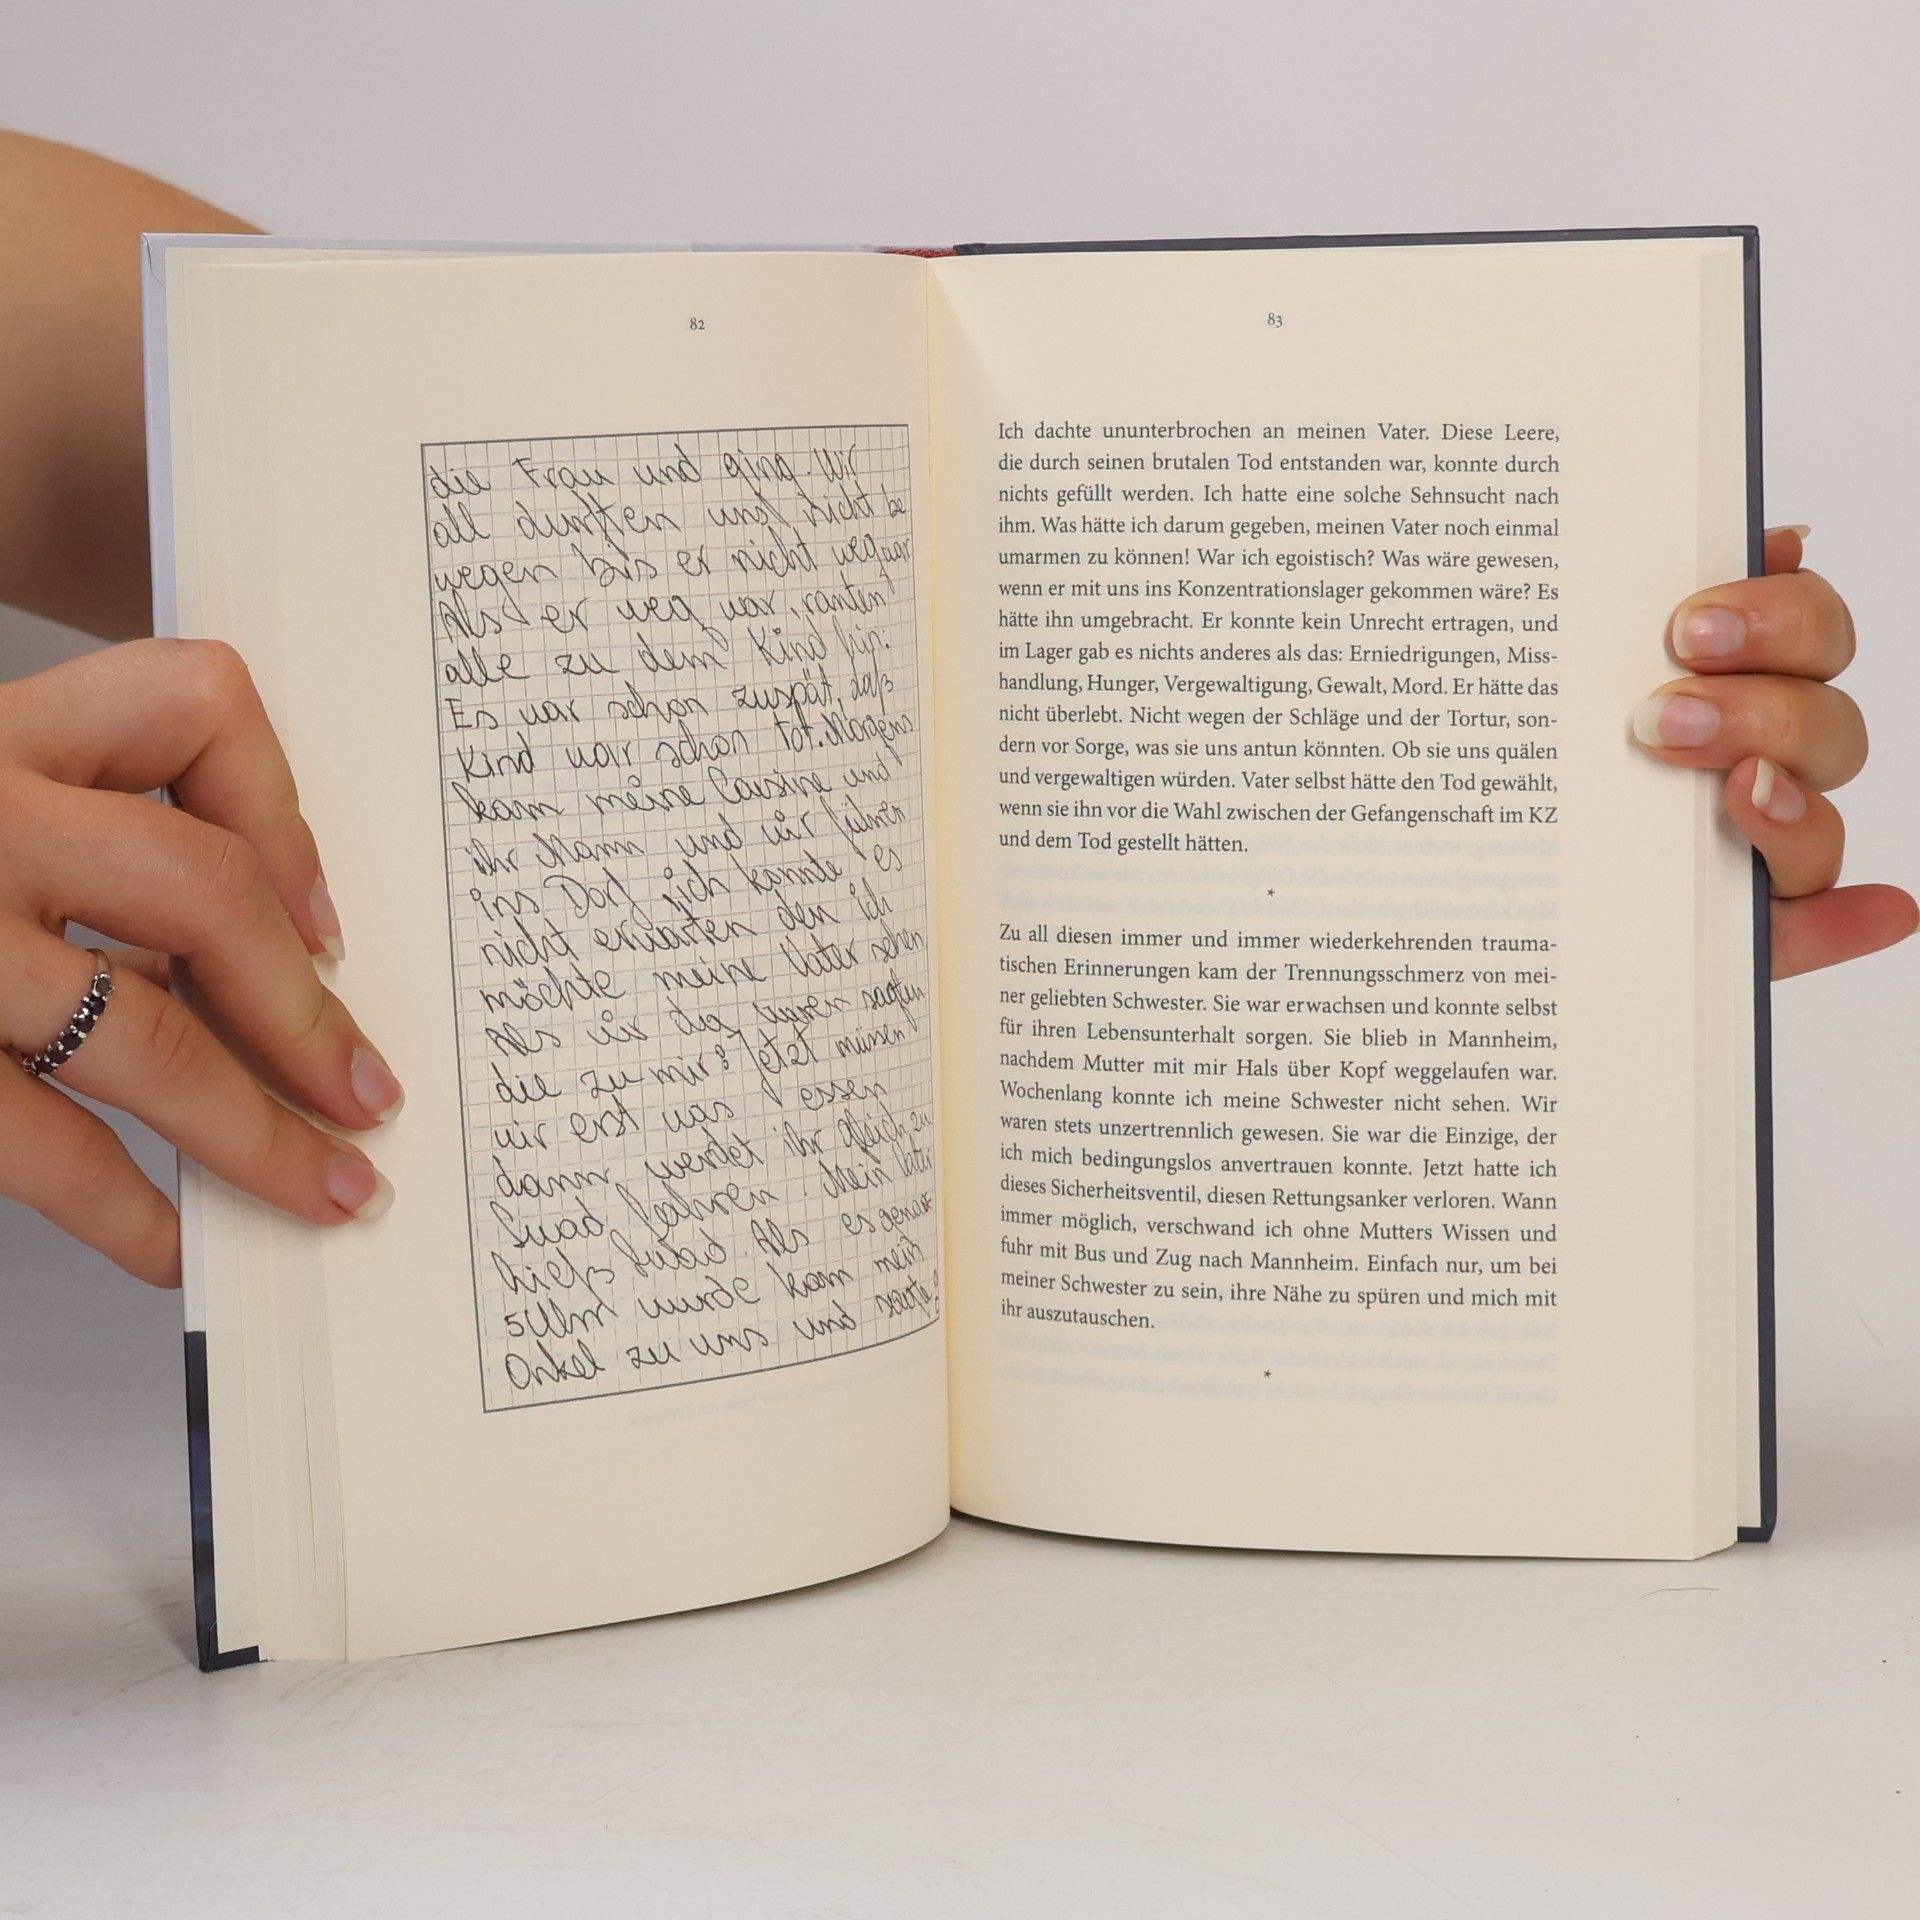 82
die Frau und ging. Wir
all durften uns nicht be
wegen bis er nicht weg war
Als er weg war, ranten
alle zu dem Kind hin:
Es war schon zuspät, daß
Kind war schon tot. Morgens
kam meine Cousine und
ihr Mann und wir führen
ins Dorf ich konnte es
nicht erwarten den ich
möchte meine Vater sehen
Als wir da waren sagten
die zu mir: Jetzt müssen
wir erst was essen
dann werdet ihr gleich zu
Suad fahren. Mein Vater
hieß Suad. Als es genau
5 Uhr wurde kam mein
Onkel zu uns und sagte:
83
Ich dachte ununterbrochen an meinen Vater. Diese Leere,
die durch seinen brutalen Tod entstanden war, konnte durch
nichts gefüllt werden. Ich hatte eine solche Sehnsucht nach
ihm. Was hätte ich darum gegeben, meinen Vater noch einmal
umarmen zu können! War ich egoistisch? Was wäre gewesen,
wenn er mit uns ins Konzentrationslager gekommen wäre? Es
hätte ihn umgebracht. Er konnte kein Unrecht ertragen, und
im Lager gab es nichts anderes als das: Erniedrigungen, Miss-
handlung, Hunger, Vergewaltigung, Gewalt, Mord. Er hätte das
nicht überlebt. Nicht wegen der Schläge und der Tortur, son-
dern vor Sorge, was sie uns antun könnten. Ob sie uns quälen
und vergewaltigen würden. Vater selbst hätte den Tod gewählt,
wenn sie ihn vor die Wahl zwischen der Gefangenschaft im KZ
und dem Tod gestellt hätten.
*
Zu all diesen immer und immer wiederkehrenden trauma-
tischen Erinnerungen kam der Trennungsschmerz von mei-
ner geliebten Schwester. Sie war erwachsen und konnte selbst
für ihren Lebensunterhalt sorgen. Sie blieb in Mannheim,
nachdem Mutter mit mir Hals über Kopf weggelaufen war.
Wochenlang konnte ich meine Schwester nicht sehen. Wir
waren stets unzertrennlich gewesen. Sie war die Einzige, der
ich mich bedingungslos anvertrauen konnte. Jetzt hatte ich
dieses Sicherheitsventil, diesen Rettungsanker verloren. Wann
immer möglich, verschwand ich ohne Mutters Wissen und
fuhr mit Bus und Zug nach Mannheim. Einfach nur, um bei
meiner Schwester zu sein, ihre Nähe zu spüren und mich mit
ihr auszutauschen.
*